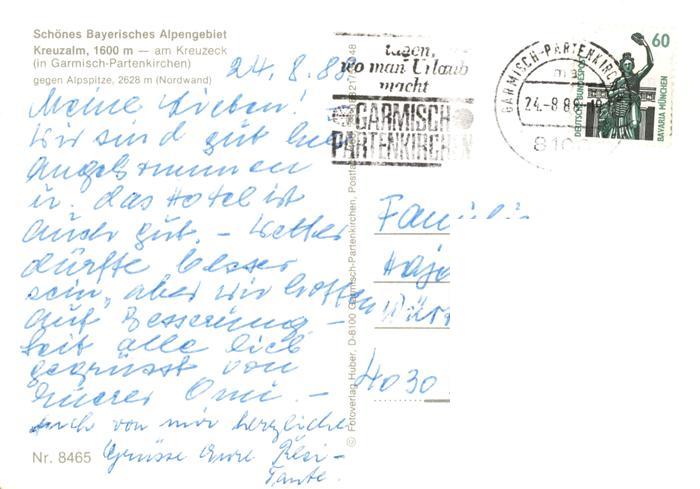 Schönes Bayerisches Alpengebiet
Kreuzalm, 1600 m — am Kreuzeck
(in Garmisch-Partenkirchen)
gegen Alpspitze, 2628 m (Nordwand)
24.8.88.
Meine Lieben! –
Wir sind gut hier
angekommen
u. das Hotel ist
auch gut. – Wetter
dürfte besser
sein, aber wir hoffen
auf Besserung. –
Seid alle lieb
gegrüsst von
Eurer Omi. –
Auch von mir herzliche
Grüsse Eure Resi-
Tante.
Nr. 8465
© Fotoverlag Huber, D-8100 Garmisch-Partenkirchen,
tagen,
wo man Urlaub
macht
GARMISCH
PARTENKIRCHEN
GARMISCH-PARTENKIRCH
24.-8.88
810
60
DEUTSCHE BUNDESPOST
BAVARIA MÜNCHEN
Familie
4030